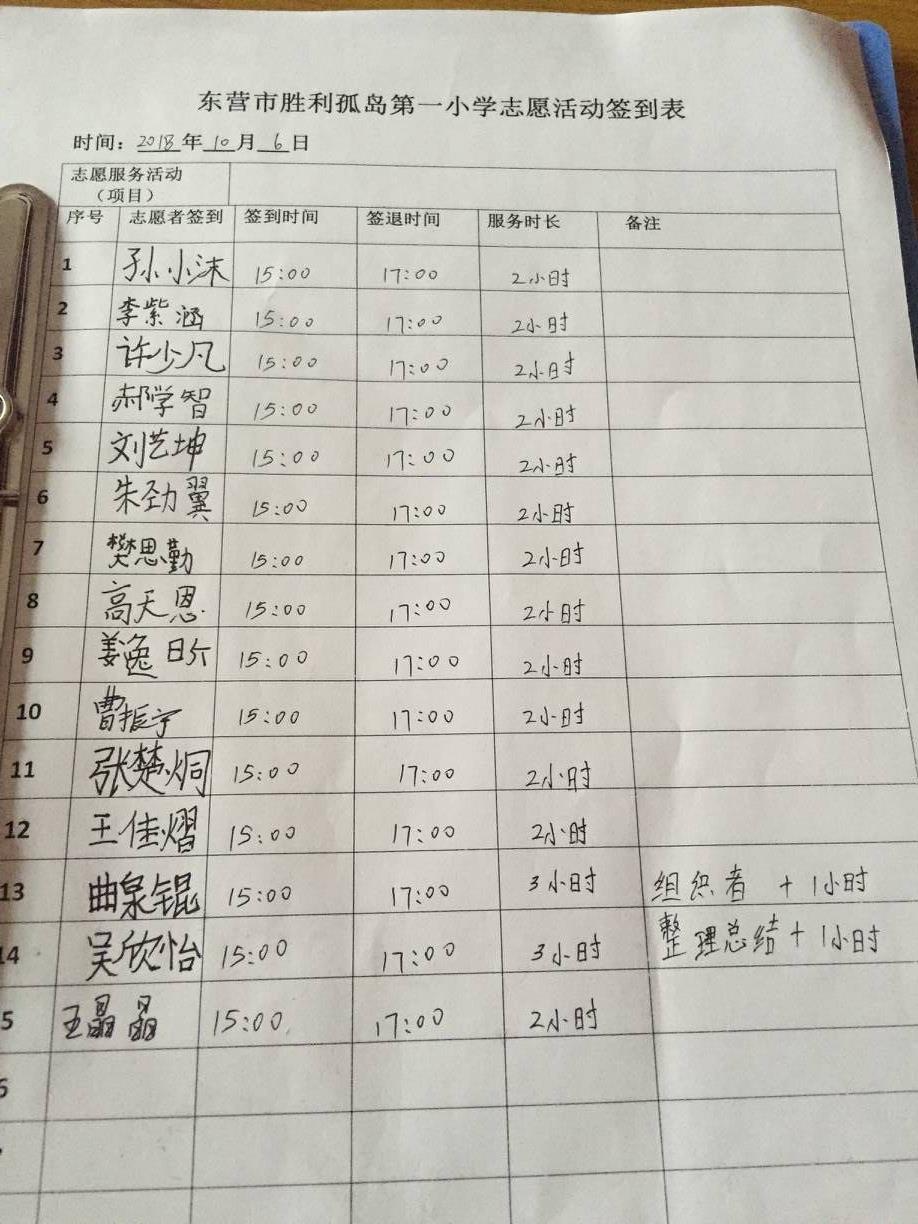 东营市胜利孤岛第一小学志愿活动签到表
时间：2018年10月6日
志愿服务活动
（项目）
序号 志愿者签到 签到时间 签退时间 服务时长 备注
1 孙小沫 15:00 17:00 2小时
2 李紫涵 15:00 17:00 2小时
3 许少凡 15:00 17:00 2小时
4 郝学智 15:00 17:00 2小时
5 刘艺坤 15:00 17:00 2小时
6 朱劲翼 15:00 17:00 2小时
7 樊思勤 15:00 17:00 2小时
8 高天恩 15:00 17:00 2小时
9 姜逸昕 15:00 17:00 2小时
10 曹振宇 15:00 17:00 2小时
11 张楚炯 15:00 17:00 2小时
12 王佳熠 15:00 17:00 2小时
13 曲泉锟 15:00 17:00 3小时 组织者 +1小时
14 吴欣怡 15:00 17:00 3小时 整理总结+1小时
5 王晶晶 15:00 17:00 2小时
6